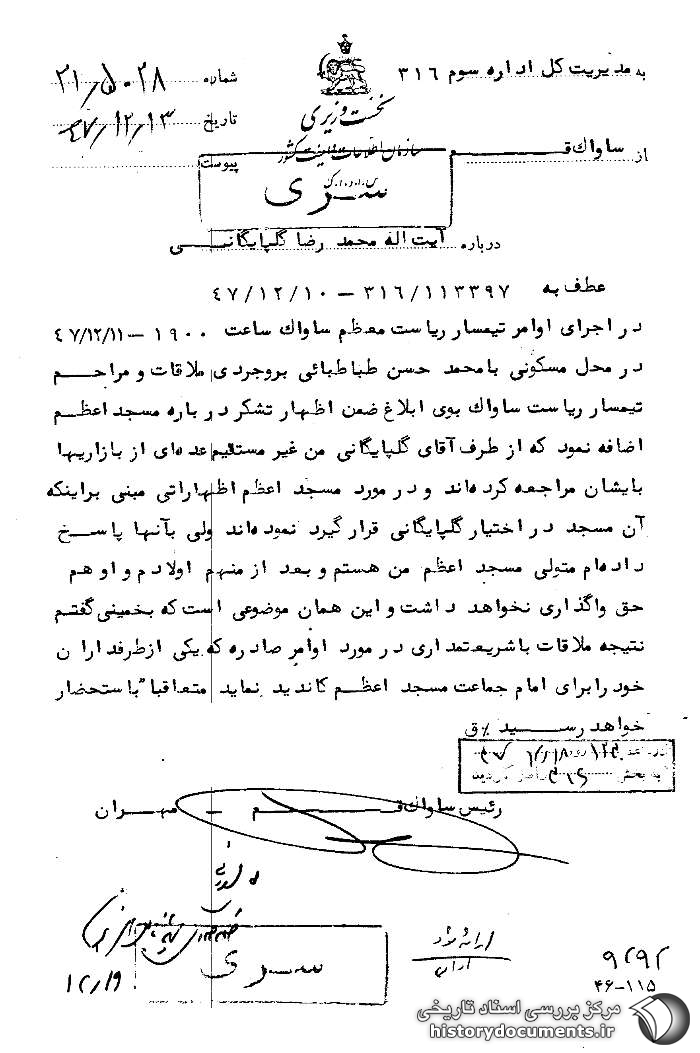 به مدیریت کل اداره سوم ۳۱۶
شماره ۲۱/۵۰۲۸
نخست وزیری
تاریخ ۴۷/۱۲/۱۳
سازمان اطلاعات و امنیت کشور
از ساواك قم
پیوست
س.ا.و.ا.ک
سری
درباره آیت اله محمد رضا گلپایگانی
عطف به ۳۱۶/۱۱۳۳۹۷ – ۴۷/۱۲/۱۰
در اجرای اوامر تیمسار ریاست معظم ساواك ساعت ۱۹۰۰ – ۴۷/۱۲/۱۱
در محل مسکونی با محمد حسن طباطبائی بروجردی ملاقات و مراحم
تیمسار ریاست ساواك بوی ابلاغ ضمن اظهار تشکر درباره مسجد اعظم
اضافه نمود که از طرف آقای گلپایگانی من غیر مستقیم عده‌ای از بازاریها
بایشان مراجعه کرده‌اند و در مورد مسجد اعظم اظهاراتی مبنی براینکه
آن مسجد در اختیار گلپایگانی قرار گیرد نموده‌اند ولی بآنها پاسخ
داده‌ام متولی مسجد اعظم من هستم و بعد از منهم اولادم و او هم
حق واگذاری نخواهد داشت و این همان موضوعی است که بخمینی گفتم
نتیجه ملاقات با شریعتمداری در مورد اوامر صادره که یکی از طرفداران
خود را برای امام جماعت مسجد اعظم کاندید نماید متعاقبا" باستحضار
خواهد رسید %ق
رئیس ساواك قم – مهران
ارائه شود
سری
۱۲/۱۹
۹۲۹۲
۴۶-۱۱۵
مرکز بررسی اسناد تاریخی
historydocuments.ir